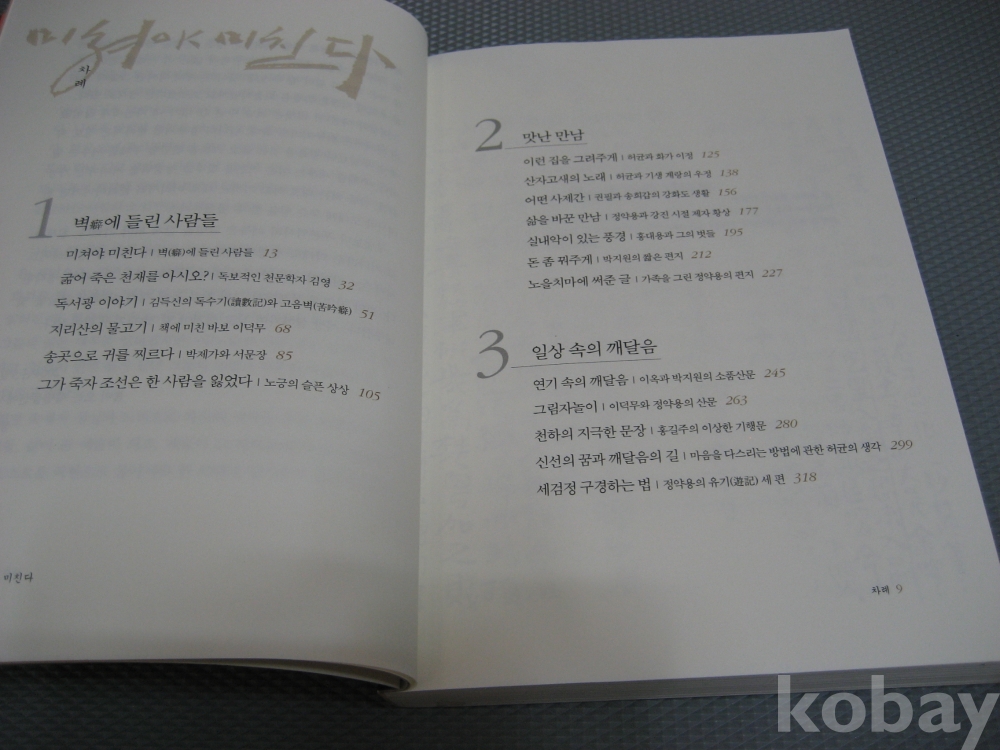 미쳐야 미친다
차례
1 벽癖에 들린 사람들
미쳐야 미친다 | 벽(癖)에 들린 사람들 13
굶어 죽은 천재를 아시오? | 독보적인 천문학자 김영 32
독서광 이야기 | 김득신의 독수기(讀數記)와 고음벽(苦吟癖) 51
지리산의 물고기 | 책에 미친 바보 이덕무 68
송곳으로 귀를 찌르다 | 박제가와 서문장 85
그가 죽자 조선은 한 사람을 잃었다 | 노긍의 슬픈 상상 105
미친다
2 맛난 만남
이런 집을 그려주게 | 허균과 화가 이정 125
산자고새의 노래 | 허균과 기생 계랑의 우정 138
어떤 사제간 | 권필과 송희갑의 강화도 생활 156
삶을 바꾼 만남 | 정약용과 강진 시절 제자 황상 177
실내악이 있는 풍경 | 홍대용과 그의 벗들 195
돈 좀 꿔주게 | 박지원의 짧은 편지 212
노을치마에 써준 글 | 가족을 그린 정약용의 편지 227
3 일상 속의 깨달음
연기 속의 깨달음 | 이옥과 박지원의 소품산문 245
그림자놀이 | 이덕무와 정약용의 산문 263
천하의 지극한 문장 | 홍길주의 이상한 기행문 280
신선의 꿈과 깨달음의 길 | 마음을 다스리는 방법에 관한 허균의 생각 299
세검정 구경하는 법 | 정약용의 유기(遊記) 세 편 318
차례 9
kobay